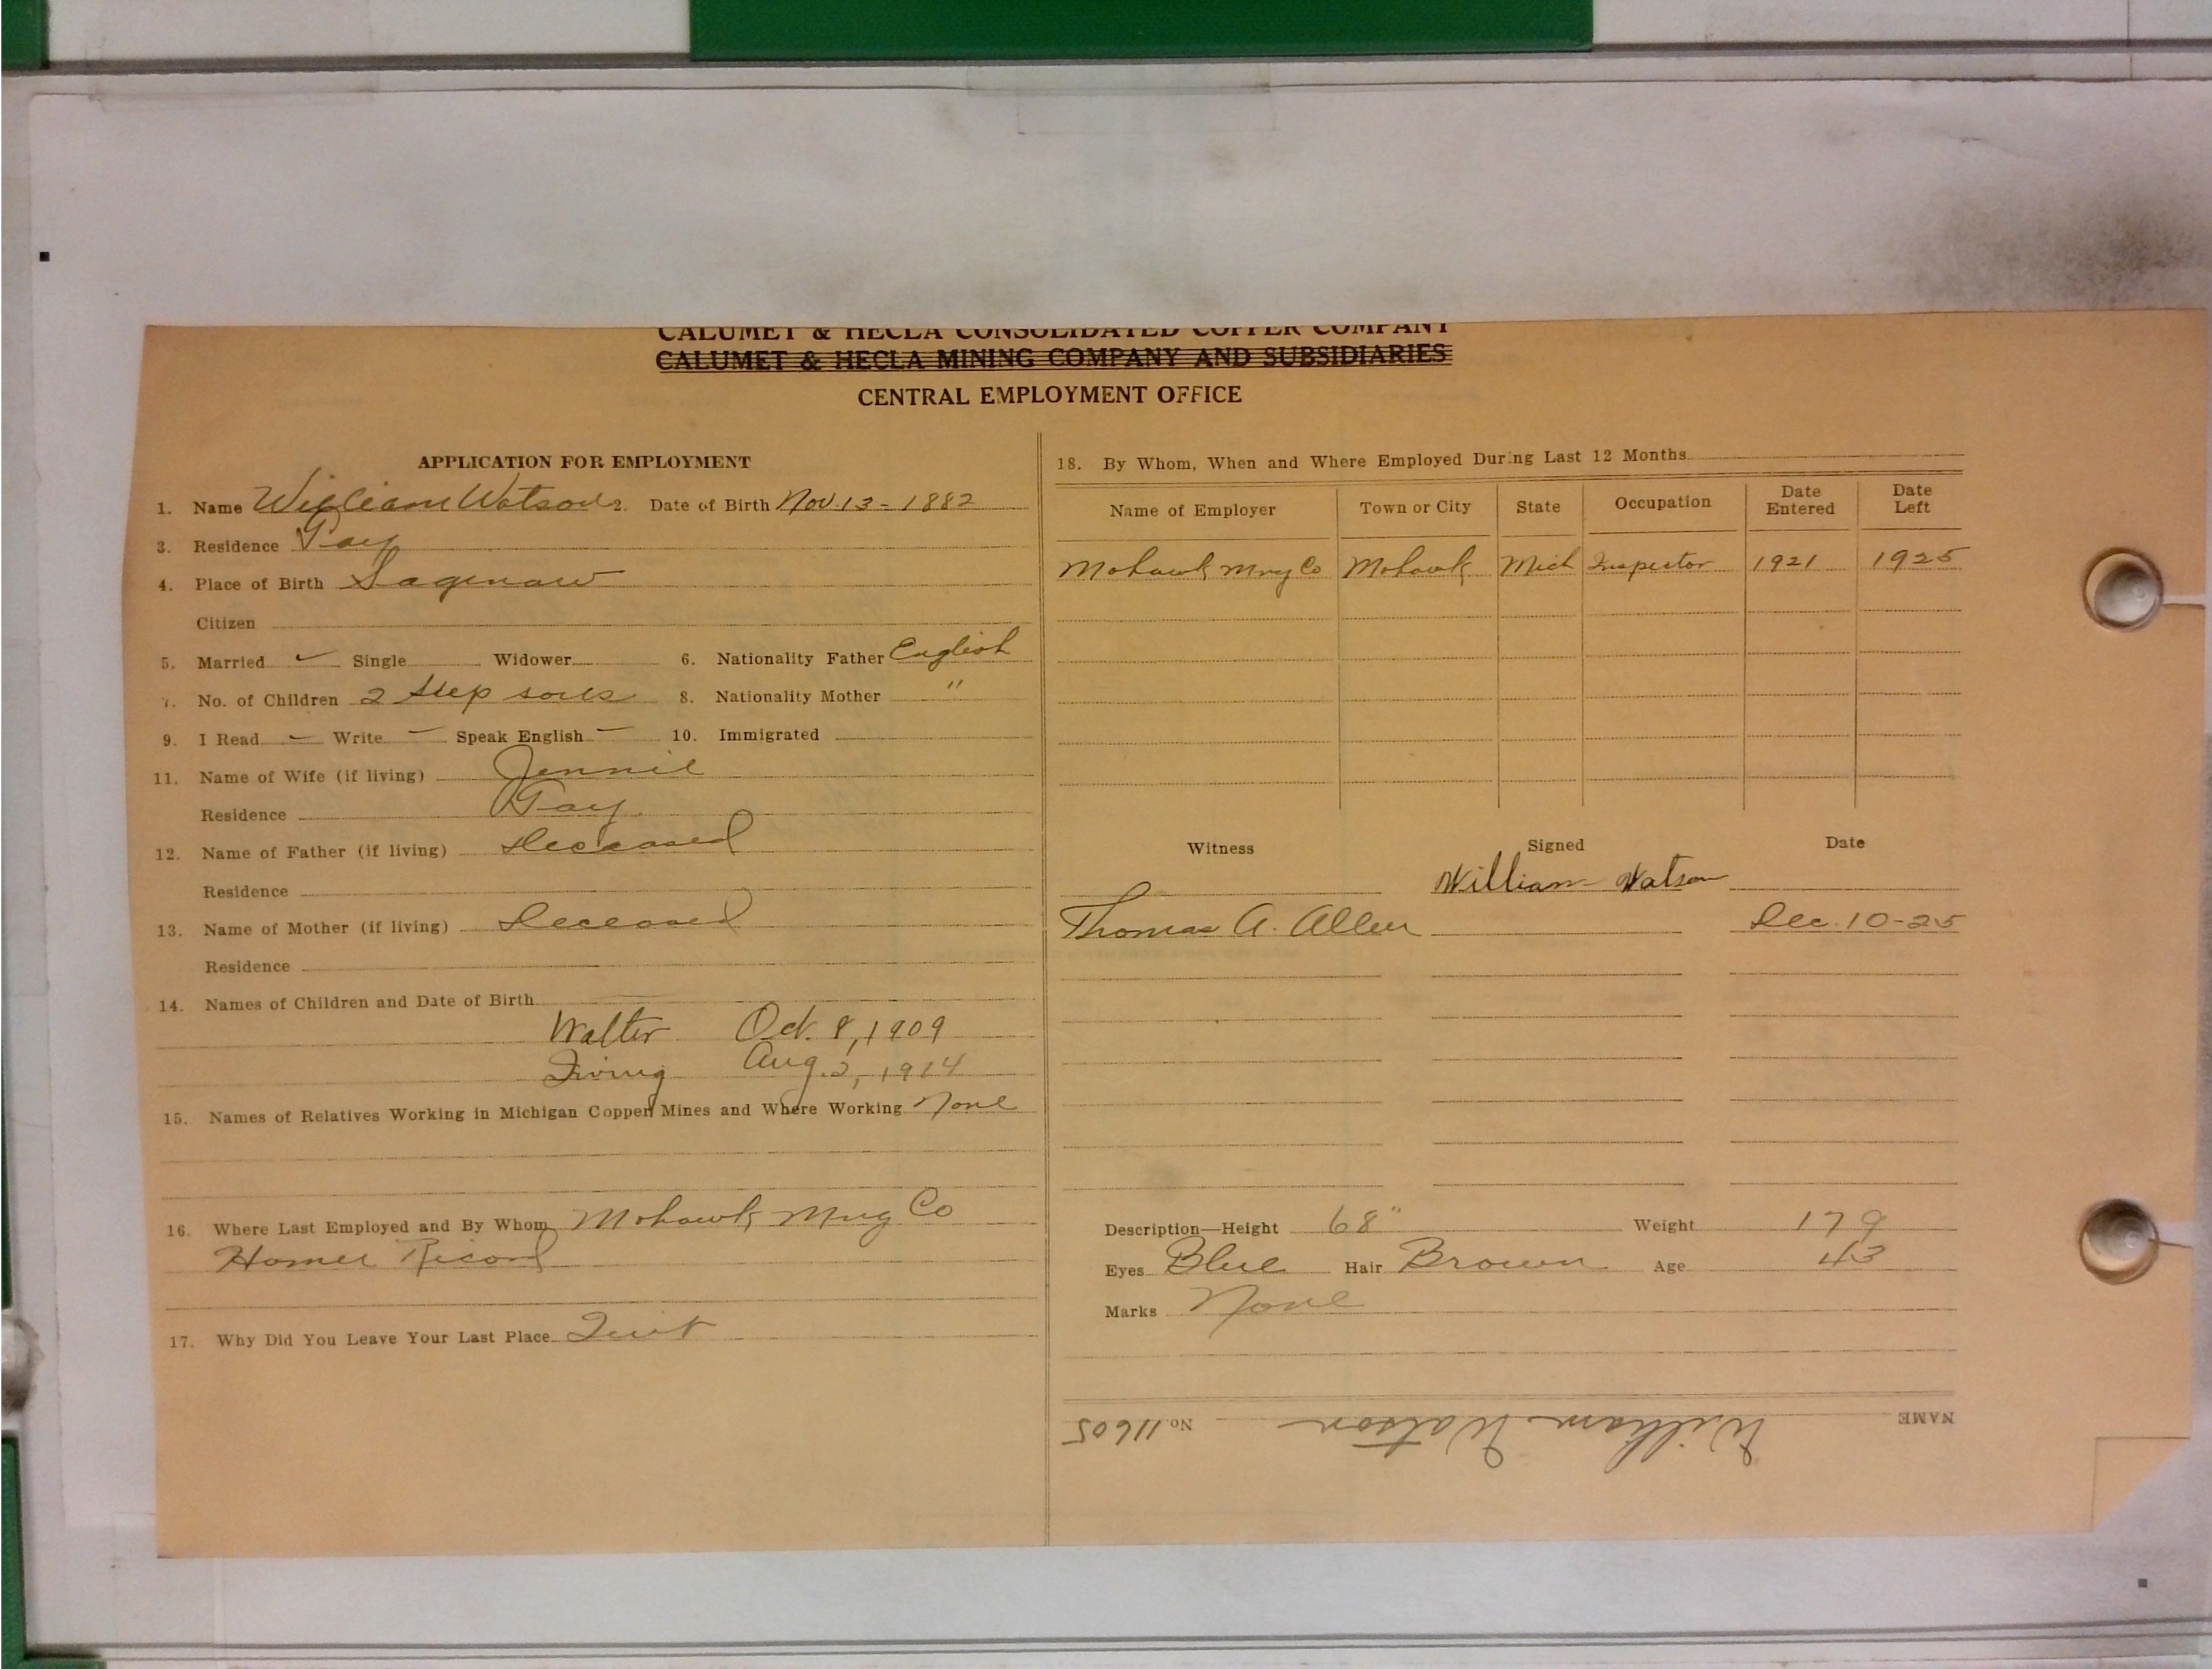 CALUMET & HECLA CONSOLIDATED COPPER COMPANY
CALUMET & HECLA MINING COMPANY AND SUBSIDIARIES
CENTRAL EMPLOYMENT OFFICE
APPLICATION FOR EMPLOYMENT
1. Name William Watson 2. Date of Birth Nov. 13 - 1882
3. Residence Gay
4. Place of Birth Saginaw
Citizen
5. Married ✓ Single Widower 6. Nationality Father English
7. No. of Children 2 Step sons 8. Nationality Mother "
9. I Read ✓ Write ✓ Speak English ✓ 10. Immigrated
11. Name of Wife (if living) Jennie
Residence Gay
12. Name of Father (if living) Deceased
Residence
13. Name of Mother (if living) Deceased
Residence
14. Names of Children and Date of Birth
Walter Oct. 8, 1909
Irving Aug. 2, 1914
15. Names of Relatives Working in Michigan Copper Mines and Where Working None
16. Where Last Employed and By Whom Mohawk Mng Co
Homer Ricord
17. Why Did You Leave Your Last Place Quit
18. By Whom, When and Where Employed During Last 12 Months
Name of Employer Town or City State Occupation Date Entered Date Left
Mohawk Mng Co Mohawk Mich Inspector 1921 1925
Witness Signed Date
William Watson
Thomas A. Allen Dec. 10-25
Description—Height 68" Weight 179
Eyes Blue Hair Brown Age 43
Marks None
NAME William Watson No. 11605